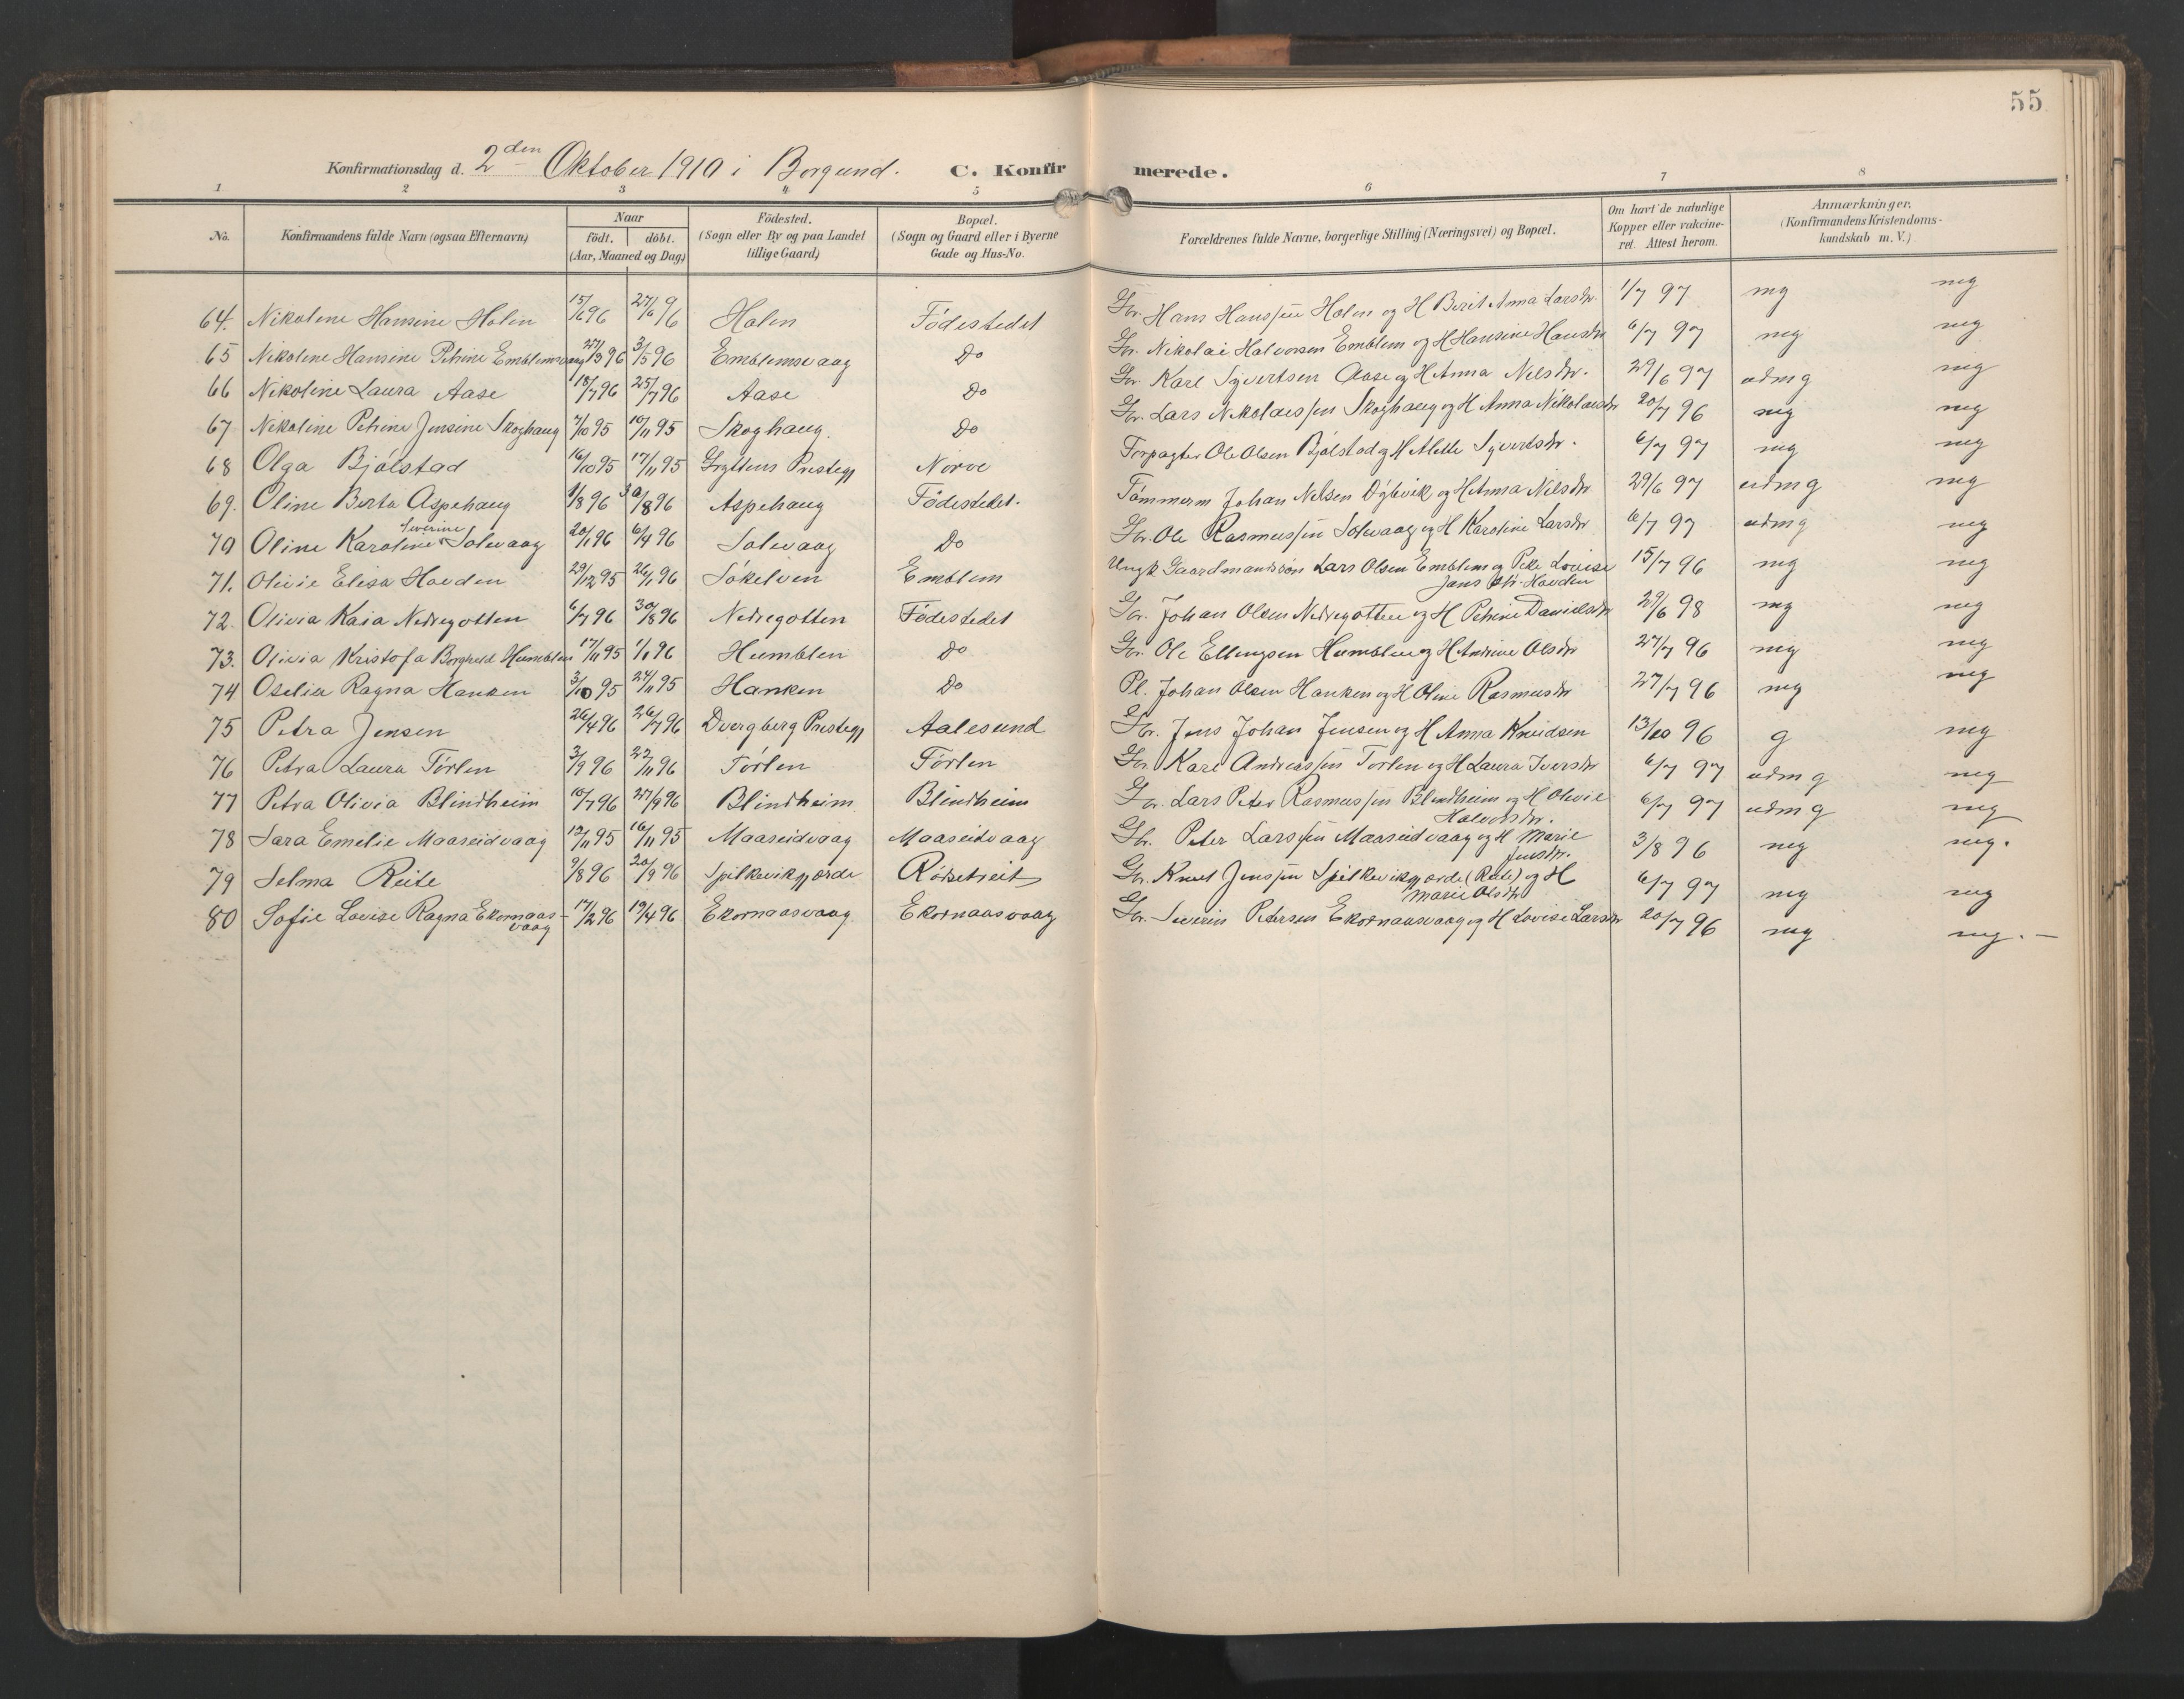 55
Konfirmationsdag d. 2den Oktober 1910 i Borgund. C. Konfir merede.
1 2 3 4 5 6 7 8
No. Konfirmandens fulde Navn (ogsaa Efternavn) Naar födt. döbt. (Aar, Maaned og Dag) Födested. (Sogn eller By og paa Landet tillige Gaard) Bopæl. (Sogn og Gaard eller i Byerne Gade og Hus-No. Forældrenes fulde Navne, borgerlige Stilling (Næringsvei) og Bopæl. Om havt de naturlige Kopper eller vakcineret. Attest herom. Anmærkninger. (Konfirmandens Kristendomskundskab m. V.)
64. Nikoline Hansine Holen 15/6 96 27/6 96 Holen Födestedet Gbr. Hans Hanssen Holen og H Berit Anna Larsdr. 1/7 97 mg meg
65 Nikoline Hansine Petrine Emblemsvaag 27/3 96 3/5 96 Emblemsvaag Do Gbr. Nikolai Halvorsen Emblem og H Hansine Hansdr 6/7 97 meg meg
66 Nikoline Laura Aase 18/7 96 25/7 96 Aase Do Gbr Karl Syvertsen Aase og H Anna Nilsdr. 29/6 97 udmg meg
67 Nikoline Petrine Jensine Skoghaug 7/10 95 10/11 95 Skoghaug. Do Gbr. Lars Nikolaissen Skoghaug og H Anna Nikolaidr 20/7 96 meg meg
68 Olga Bjölstad 16/10 95 17/11 95 Gryttens Prestegj Norve Forpagter Ole Olsen Bjölstad og H Mette Syvertsdr. 6/7 97 meg meg
69. Oline Berta Aspehaug 1/8 96 30/8 96 Aspehaug Födestedet. Tömmerm Johan Nilsen Dybvik og H Anna Nilsdr 29/6 97 udmg meg
70 Oline Karoline Severine Solevaag 20/1 96 6/4 96 Solevaag Do Gbr. Ole Rasmussen Solevaag og H Karoline Larsdr 6/7 97 udmg meg
71. Olivie Elisa Hovden 29/12 95 26/1 96 Sökelven Emblem Ungk Gaardmandssön Lars Olsen Emblem og Pike Lovise Jans dtr. Hovden 15/7 96 mg meg
72. Olivia Kaia Nedregotten 6/7 96 30/8 96 Nedregotten Födestedet Gbr. Johan Olsen Nedregotten og H Petrine Danielsdr 29/6 98 mg meg
73. Olivia Kristofa Borghild Humblen 17/11 95 1/1 96 Humblen Do Gbr. Ole Ellingsen Humblen og H Andrine Olsdr 27/7 96 mg meg
74 Oselia Ragna Hanken 3/10 95 24/11 95 Hanken Do Pl. Johan Olsen Hanken og H Oline Rasmusdr 27/7 96 meg meg
75 Petra Jensen 26/4 96 26/7 96 Dvergberg Prestegj Aalesund Gbr. Jens Johan Jensen og H Anna Knudsen 13/10 96 g meg
76 Petra Laura Törlen 3/9 96 22/11 96 Törlen Törlen Gbr Karl Andreassen Törlen og H Laura Iversdr 6/7 97 udmg meg
77 Petra Olivia Blindheim 10/7 96 27/9 96 Blindheim Blindheim Gbr. Lars Peter Rasmussen Blindheim og H Olivie Halvorsdr. 6/7 97 udmg meg
78 Sara Emelie Maaseidvaag 12/11 95 16/11 95 Maaseidvaag Maaseidvaag Gbr. Peter Larssen Maaseidvaag og H Marie Jensdr. 3/8 96 meg meg.
79 Selma Reite 9/8 96 20/9 96 Spilkevikgjærde Rödsetreit Gbr. Knut Jenssen Spilkevikgjærde (Reite) og H Marie Olsdtr 6/7 97 meg meg
80 Sofie Lovise Ragna Ekornaasvaag 17/2 96 19/4 96 Ekornaasvaag Ekornaasvaag Gbr. Severin Petersen Ekornaasvaag og H Lovise Larsdr 20/7 96 meg meg. —